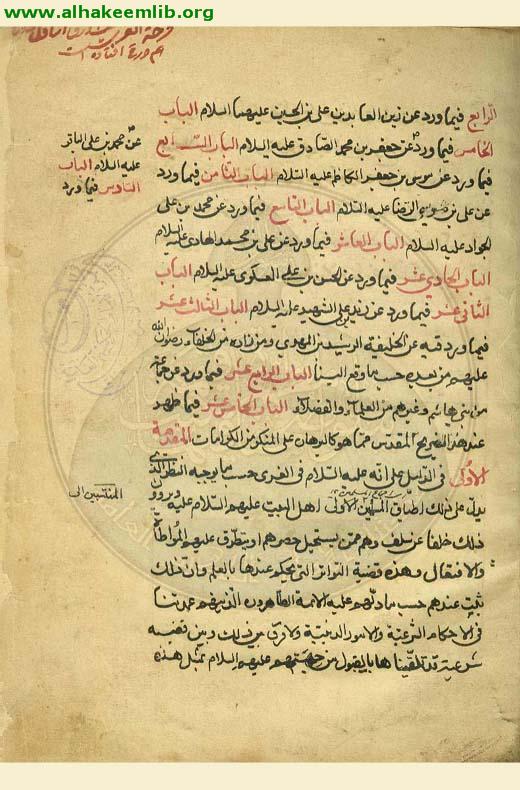 www.alhakeemlib.org
الرابع فيما ورد عن زين العابدين علي بن الحسين عليهما السلام الباب
الخامس فيما ورد عن جعفر بن محمد الصادق عليه السلام الباب السابع
عن محمد بن علي الباقر
عليه السلام الباب
السادس فيما ورد
فيما ورد عن موسى بن جعفر الكاظم عليه السلام الباب الثامن فيما ورد
عن علي بن موسى الرضا عليه السلام الباب التاسع فيما ورد عن محمد بن علي
الجواد عليه السلام الباب العاشر فيما ورد عن علي بن محمد الهادي عليه السلام
الباب الحادي عشر فيما ورد عن الحسن بن علي العسكري عليه السلام الباب
الثاني عشر فيما ورد عن زيد بن علي الشهيد عليه السلام الباب الثالث عشر
فيما ورد فيه عن الخليفة الرشيد بن المهدي ومن زاره من الخلفاء رضوان الله
عليهم من بعده حسب ما وقع الينا الباب الرابع عشر فيما ورد عن جماعة
من بني هاشم وغيرهم من العلماء والفضلاء الباب الخامس عشر فيما ظهر
عند هذا الضريح المقدس مما هو كالبرهان على المنكر من الكرامات المقدمة
الاولى في الدليل على انه عليه السلام في الغري حسب ما يوجبه النظر الذي
يدل على ذلك اطباق المنتمين الى اهل البيت عليهم السلام عليه ويروون
المنتسبين الى
ذلك خلفا عن سلف وهم ممن يستحيل حصرهم او يتطرق عليهم المواطاة
والافتعال وهذه قضية التواتر التي يحكم عندها بالعلم وان ذلك
ثبت عندهم حسب ما دلهم عليه الائمة الطاهرون الذين هم عمدتنا
في الاحكام الشرعية والامور الدينية ولا فرق بين ذلك وبين قضية
شرعية قد تلقيناها بالقبول من جهتهم عليهم السلام بمثل هذه